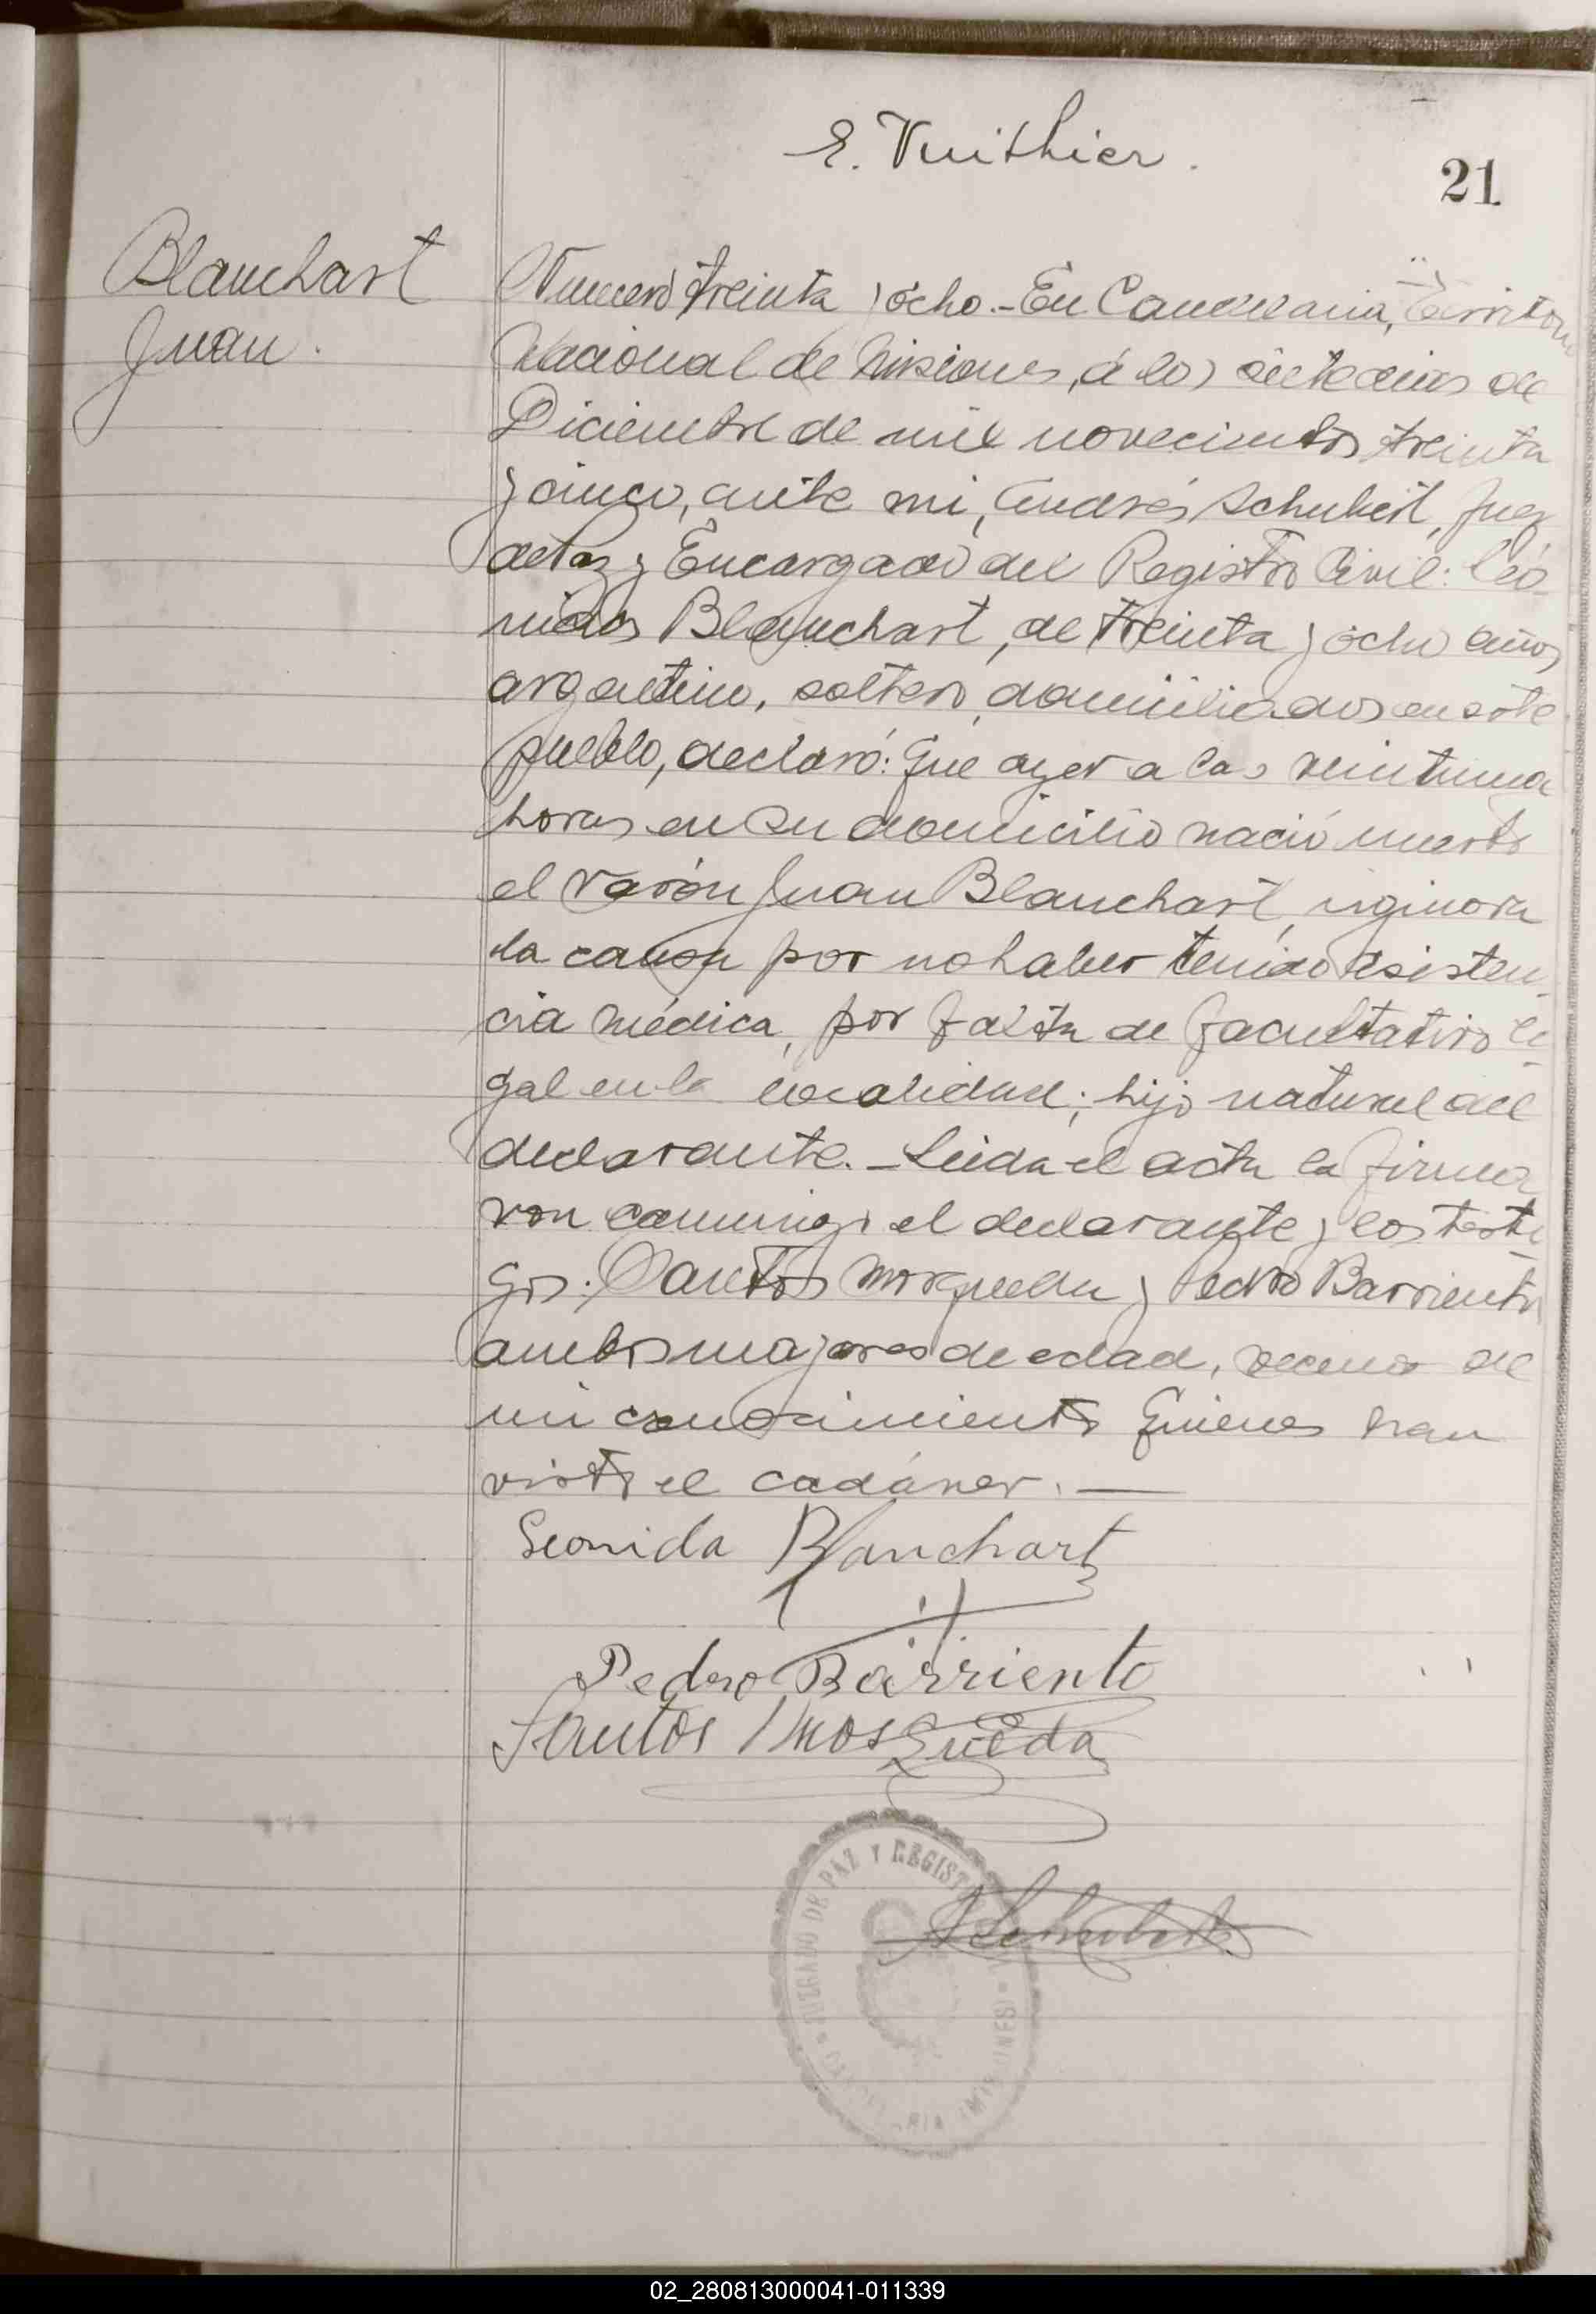 E. Vuithier.
21
Blanchart
Juan.
Numero treinta y ocho.- En Candelaria, Territorio
Nacional de Misiones, á los siete dias de
Diciembre de mil novecientos treinta
y cinco, ante mi, Andrés Schubert, Juez
de Paz y Encargado del Registro Civil: Leó-
nidas Blanchart, de treinta y ocho años
argentino, soltero, domiciliados en este
pueblo, declaró: Que ayer a las veintiuna
horas en su domicilio nació muerto
el varón Juan Blanchart, ignora
la causa por no haber tenido asisten-
cia médica, por falta de facultativo le-
gal en la localidad; hijo natural del
declarante.- Leida el acta la firma
ron conmigo el declarante y los testi-
gos: Santos Mosqueda y Pedro Barriento
ambos mayores de edad, vecinos de
mi conocimiento quienes han
visto el cadáver.—
Leonida Blanchart
Pedro Barriento
Santos Mosqueda
A Schubert
JUZGADO DE PAZ Y REGISTRO
(MISIONES)
02_280813000041-011339